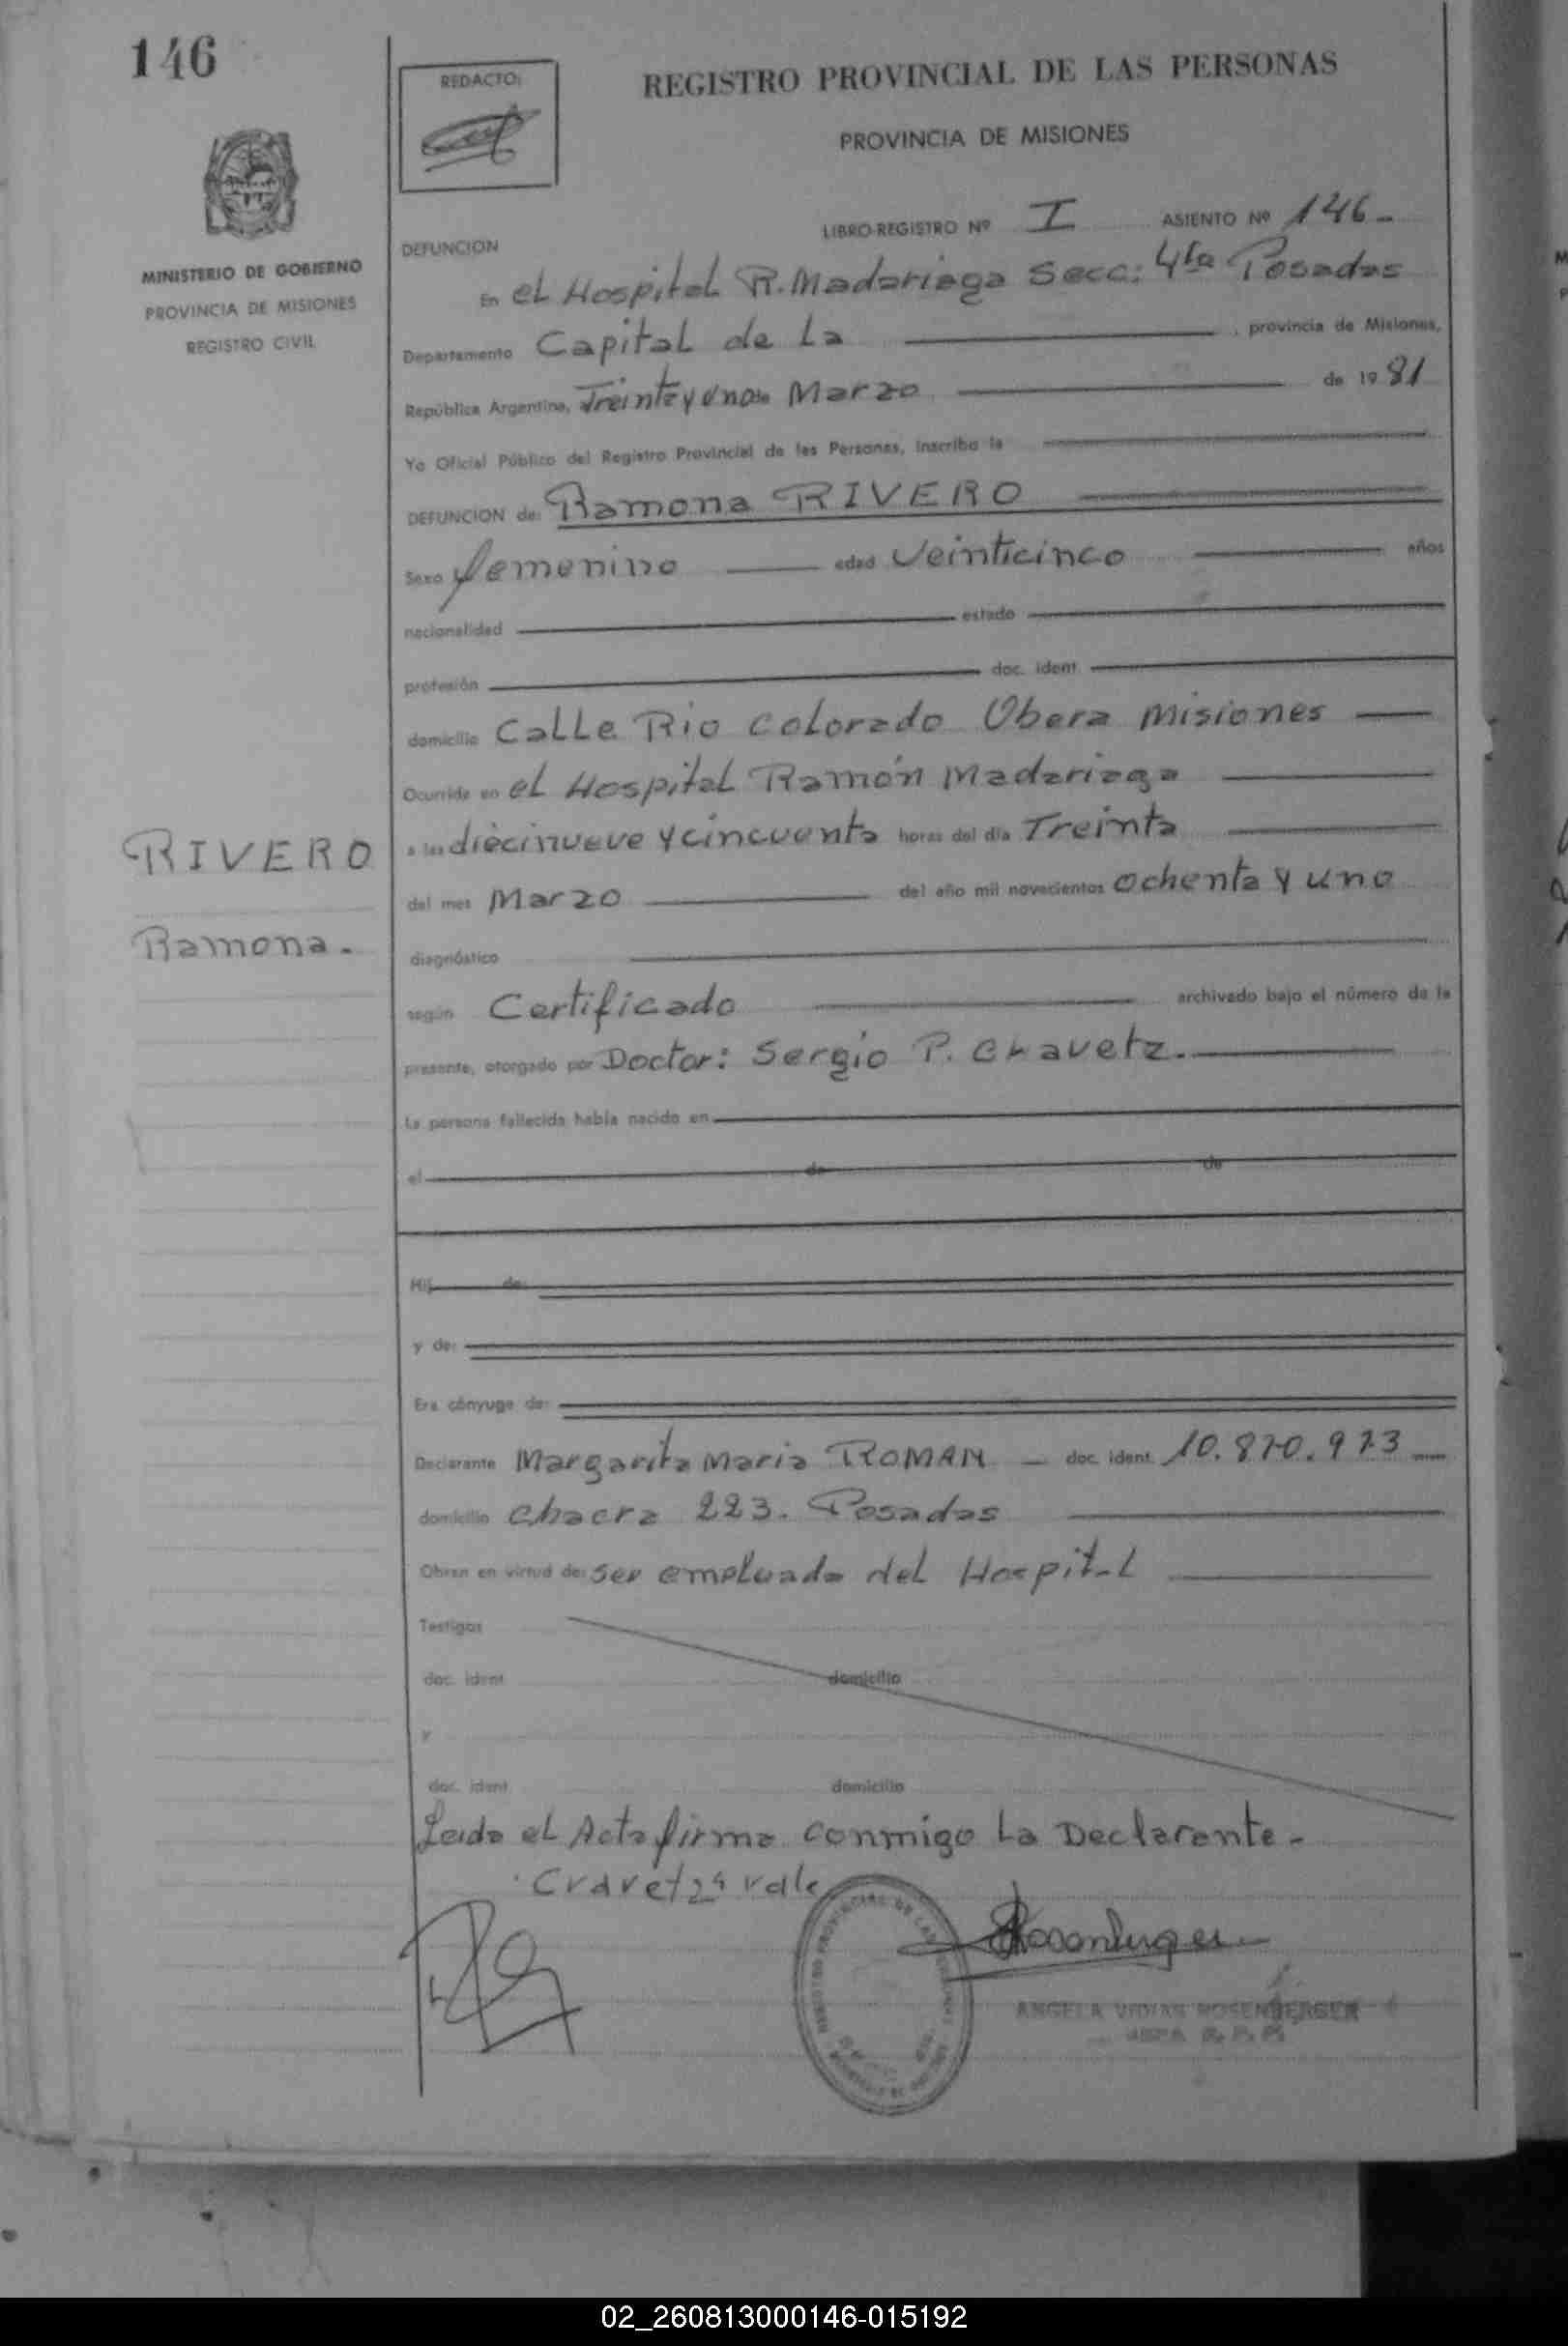 146
REDACTO:
REGISTRO PROVINCIAL DE LAS PERSONAS
PROVINCIA DE MISIONES
LIBRO-REGISTRO Nº I ASIENTO Nº 146-
DEFUNCION
MINISTERIO DE GOBIERNO
PROVINCIA DE MISIONES
REGISTRO CIVIL
En el Hospital R. Madariaga Secc: 4ta Posadas
Departamento Capital de La , provincia de Misiones,
República Argentina, Treinta y uno de Marzo de 1981
Yo Oficial Público del Registro Provincial de las Personas, inscribo la
DEFUNCION de: Ramona RIVERO
Sexo femenino edad Veinticinco años
nacionalidad estado
profesión doc. ident.
domicilio Calle Rio Colorado Obera Misiones
Ocurrida en el Hospital Ramón Madariaga
a las diecinueve y cincuenta horas del día Treinta
del mes Marzo del año mil novecientos ochenta y uno
RIVERO
Ramona.
diagnóstico
según Certificado archivado bajo el número de la
presente, otorgado por Doctor: Sergio P. Chavetz.
La persona fallecida había nacido en
el de de
Hij de:
y de:
Era cónyuge de:
Declarante Margarita Maria ROMAN doc. ident. 10.870.973
domicilio Chacra 223. Posadas
Obran en virtud de: ser empleada del Hospital
Testigos
doc. ident. domicilio
y
doc. ident. domicilio
Leida el Acta firma conmigo La Declarante-
Cravetz vale
ANGELA ROSENBERGER
02_260813000146-015192